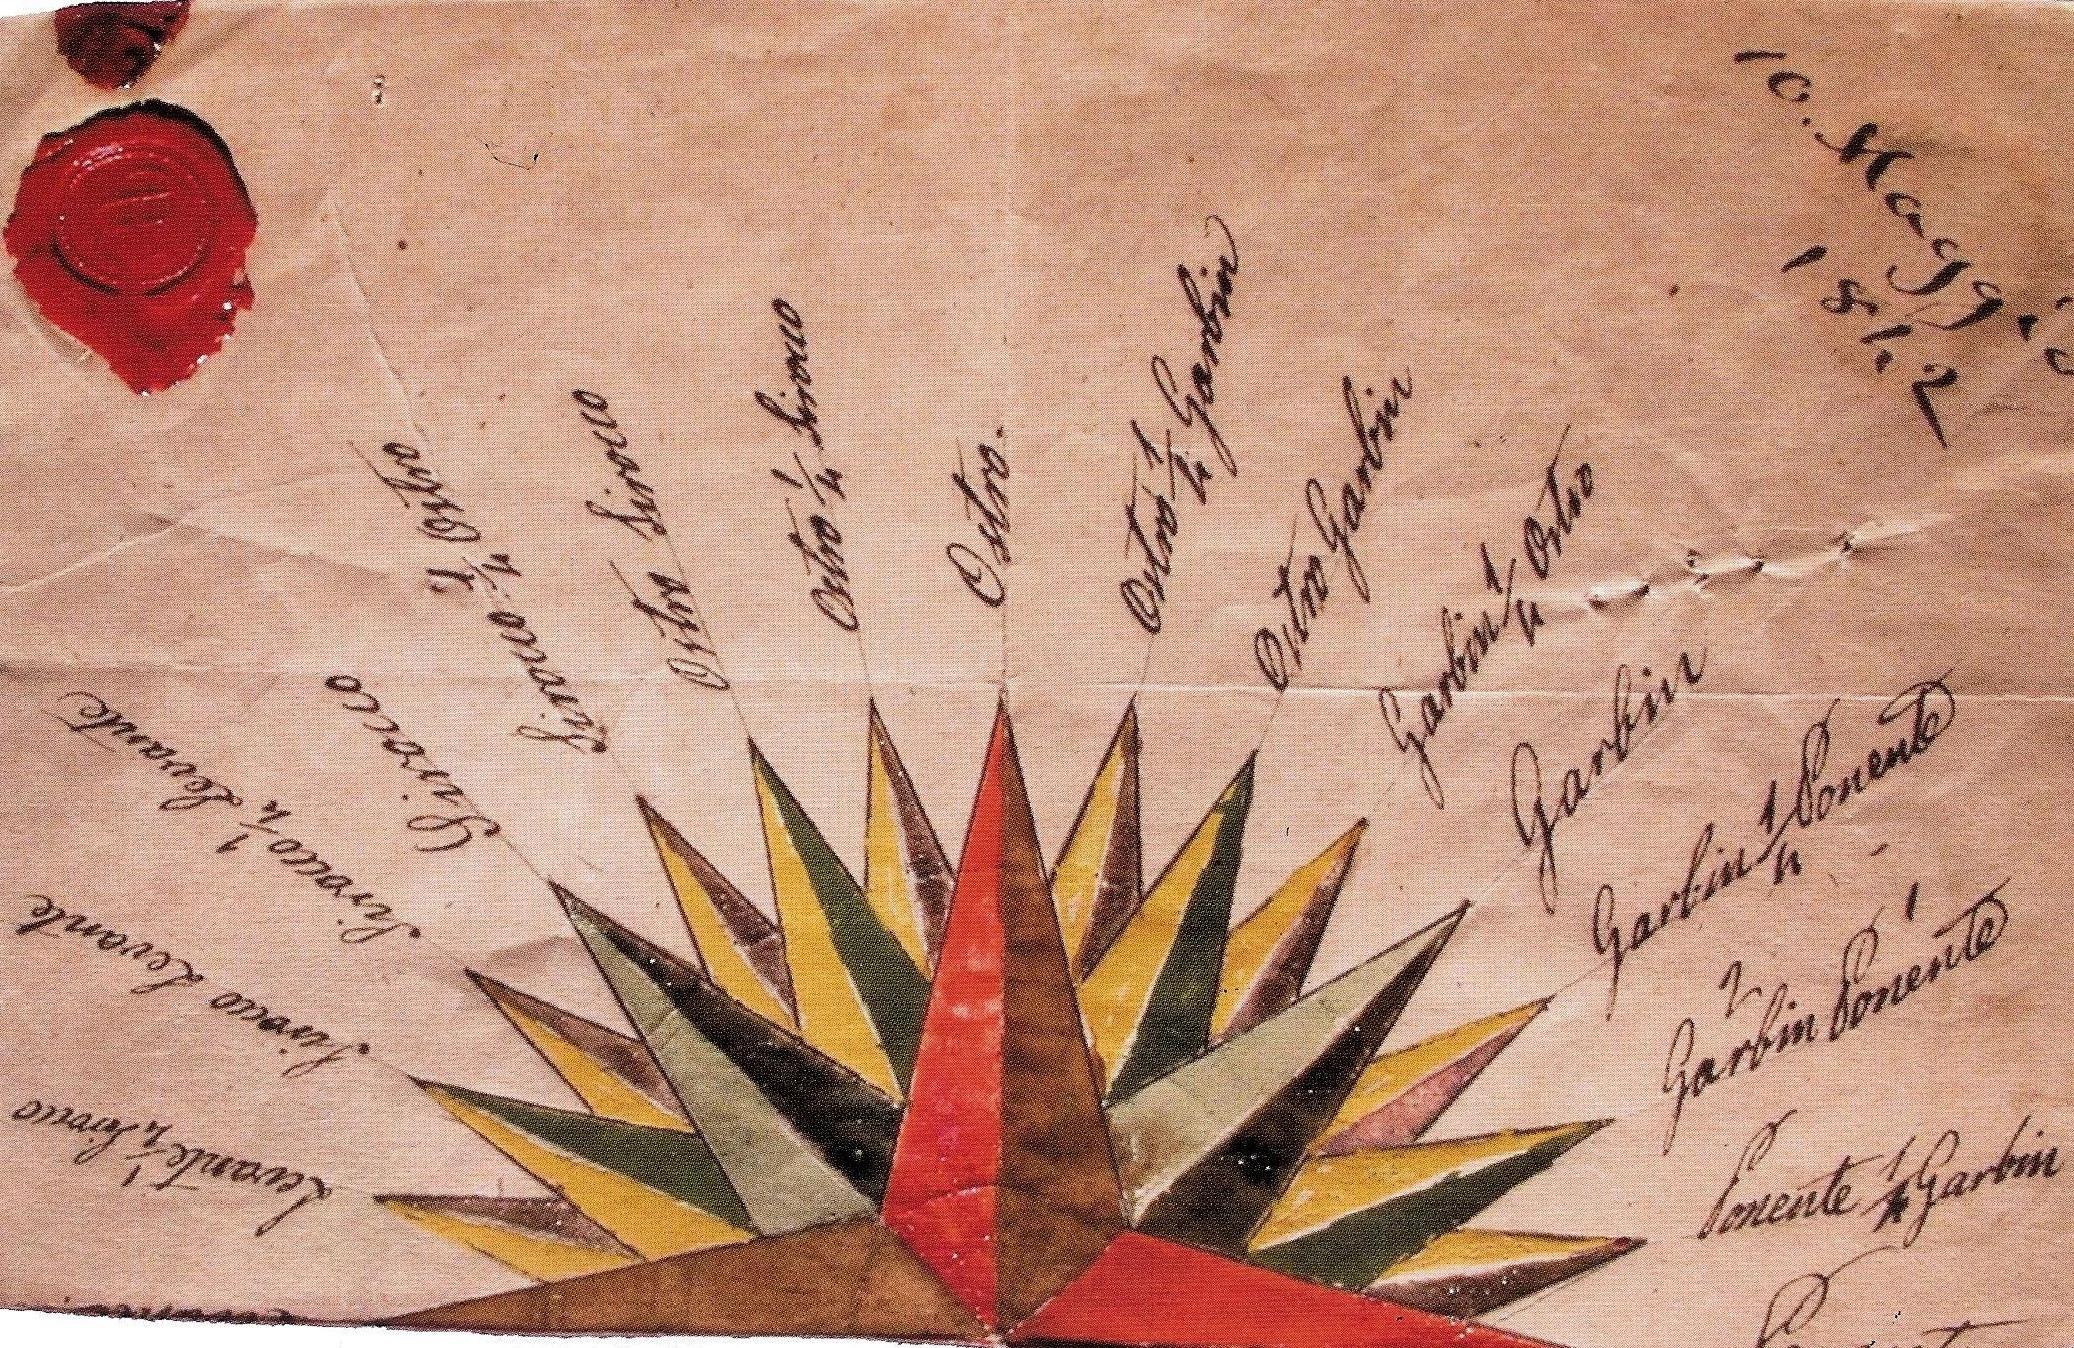 10. Maggio
1812
Levante 1/4 Sirocco
Sirocco Levante
Sirocco 1/4 Levante
Sirocco
Sirocco 1/4 Ostro
Ostro Sirocco
Ostro 1/4 Sirocco
Ostro.
Ostro 1/4 Garbin
Ostro Garbin
Garbin 1/4 Ostro
Garbin
Garbin 1/4 Ponente
Garbin Ponente
Ponente 1/4 Garbin